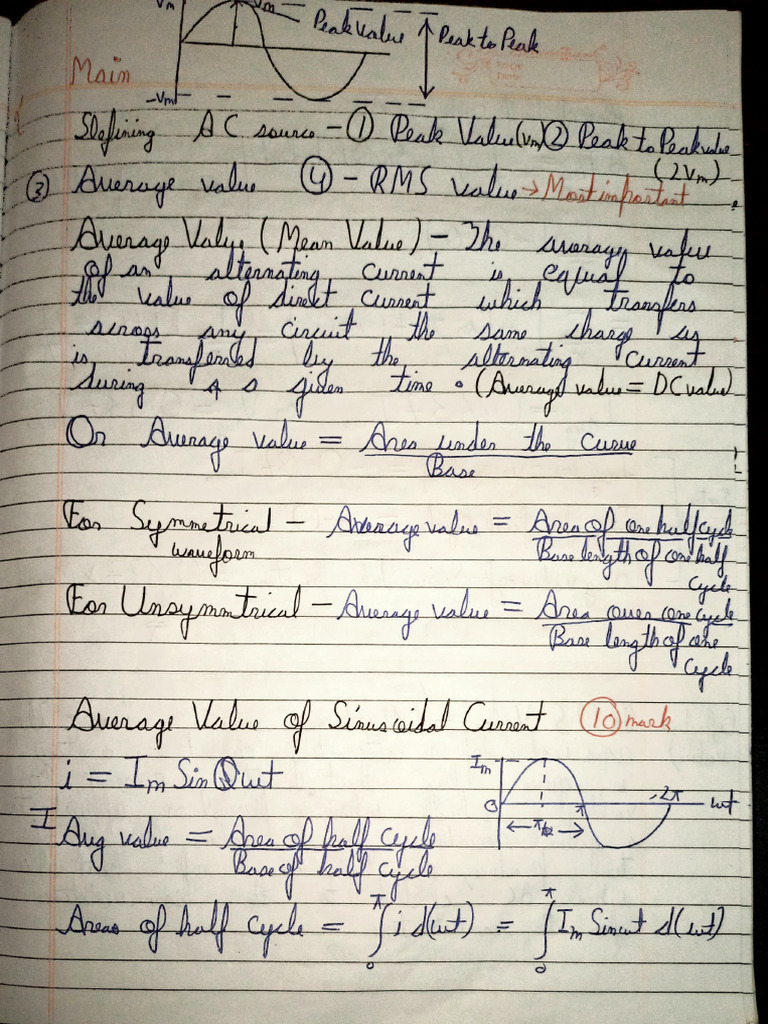 Vm
Vm
Peak Value
Peak to Peak
Main
-Vm
Defining AC source - ① Peak Value (Vm) ② Peak to Peak value
(2Vm)
③ Average value ④ - RMS value → Most important
Average Value (Mean Value) - The average value
of an alternating current is equal to
the value of direct current which transfers
across any circuit the same charge as
is transferred by the alternating current
during a given time. (Average value = DC value)
Or Average value = Area under the curve
Base
For Symmetrical - Average value = Area of one half cycle
waveform Base length of one half
cycle
For Unsymmtrical - Average value = Area over one cycle
Base length of one
cycle
Average Value of Sinusoidal Current 10 mark
i = Im Sin ωt
Im
0
π
2π
ωt
I Avg value = Area of half cycle
Base of half cycle
Areas of half cycle = ∫₀^π i d(ωt) = ∫₀^π Im Sin ωt d(ωt)